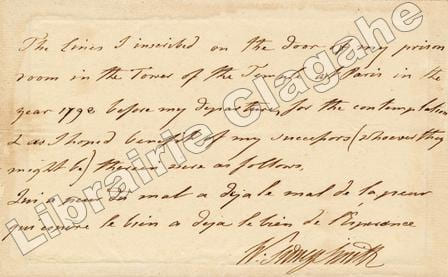 The lines I inscribed on the door of my prison
room in the Tower of the Temple at Paris in the
year 1798 before my departure, for the contemplation
& as I hoped benefit of my successors (whoever they
might be) therein were as follows.
Qui a peur du mal a deja le mal de la peur
qui espere le bien a deja le bien de l'Esperance
W. Sidney Smith
Librairie Clagahe